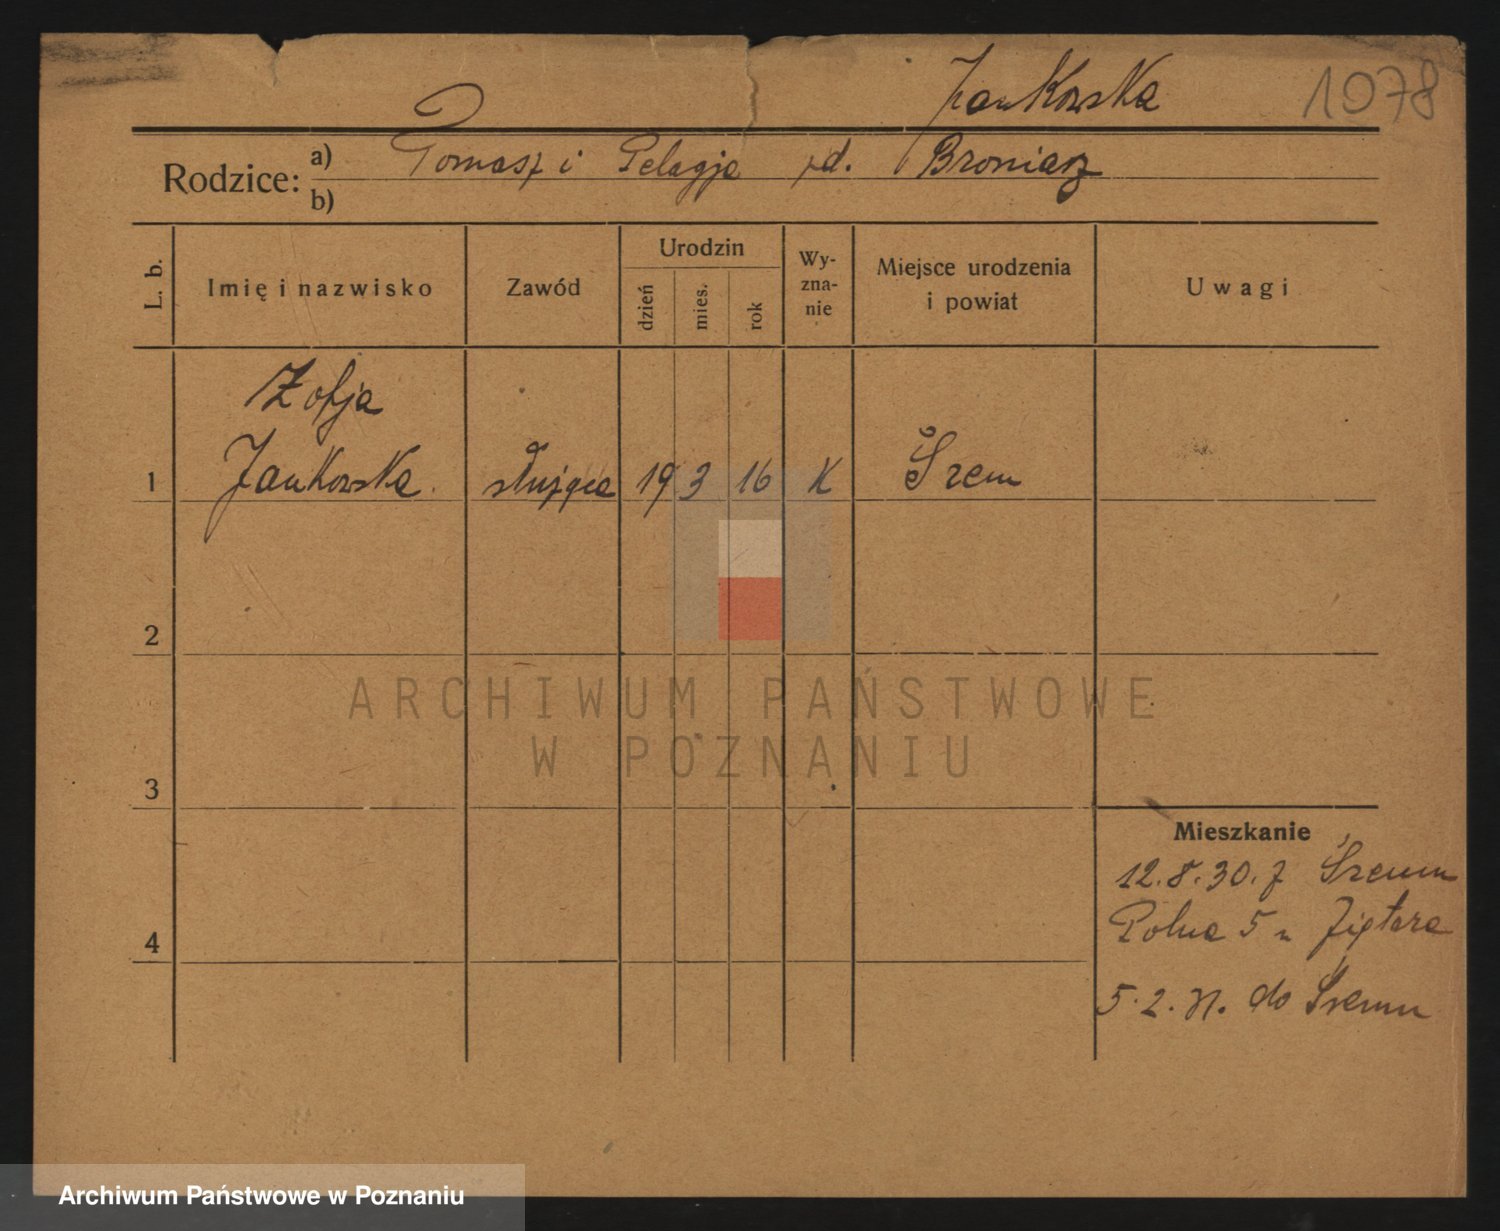 Jankowska 1078
Rodzice: a) Tomasz i Pelagja zd. Broniarz
b)
L. b. Imię i nazwisko Zawód Urodzin dzień mies. rok Wy-zna-nie Miejsce urodzenia i powiat Uwagi
Zofja
1 Jankowska służąca 19 3 16 K Śrem
2
ARCHIWUM PAŃSTWOWE
W POZNANIU
3
Mieszkanie
12.8.30. z Śremu
Polna 5
4
5.2.31. do Śremu
Archiwum Państwowe w Poznaniu